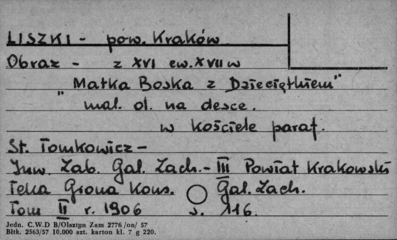 LISZKI - pow. Kraków
Obraz - z XVI ew. XVII w
"Matka Boska z Dzieciątkiem"
mal. ol. na desce.
w kościele paraf.
St. Tomkowicz -
Inw. Zab. Gal. Zach. - III Powiat Krakowski
Teka Grona Kons. Gal. Zach.
Tom II r. 1906 s. 116.
Jedn. C.W.D B/Olsztyn Zam 2776 /on/ 57
Bltk. 2563/57 10.000 szt. karton kl. 7 g 220.